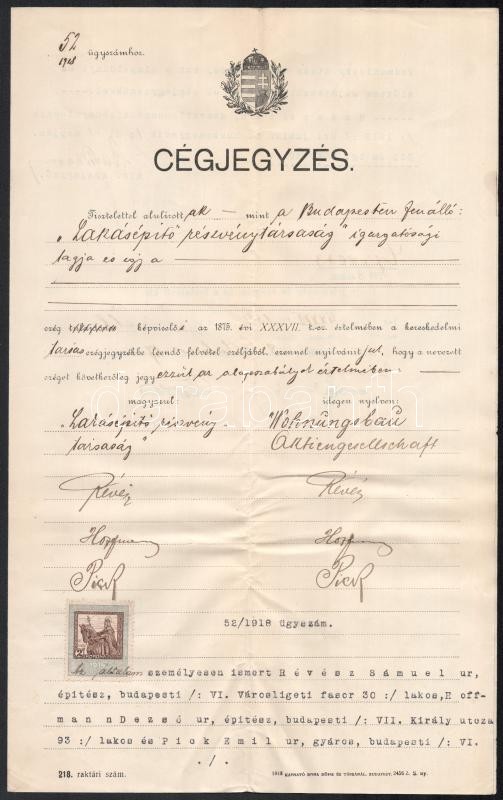 52
1918 ügyszámhoz.
CÉGJEGYZÉS.
Tisztelettel alulirott ak — mint a Budapesten fenálló:
„Lakásépitő részvénytársaság" igazgatósági
tagja és igy a
czég képviselői az 1875. évi XXXVII. t.-cz. értelmében a kereskedelmi
társas czégjegyzékbe leendő felvétel czéljából, ezennel nyilvánit juk, hogy a nevezett
czéget következőleg jegyezzük az alapszabályok értelmében:
magyarul: idegen nyelven:
„Lakásépitő részvény Wohnungsbau
társaság" Aktiengesellschaft
Révész Révész
Hoffmann Hoffmann
Pick Pick
52/1918 ügyszám.
Az általam személyesen ismert Révész Sámuel ur,
épitész, budapesti /: VI. Városligeti fasor 30 :/ lakos, Hoff-
mann Dezső ur, épitész, budapesti /: VII. Király utcza
93 :/ lakos és Pick Emil ur, gyáros, budapesti /: VI.
./.
218. raktári szám.